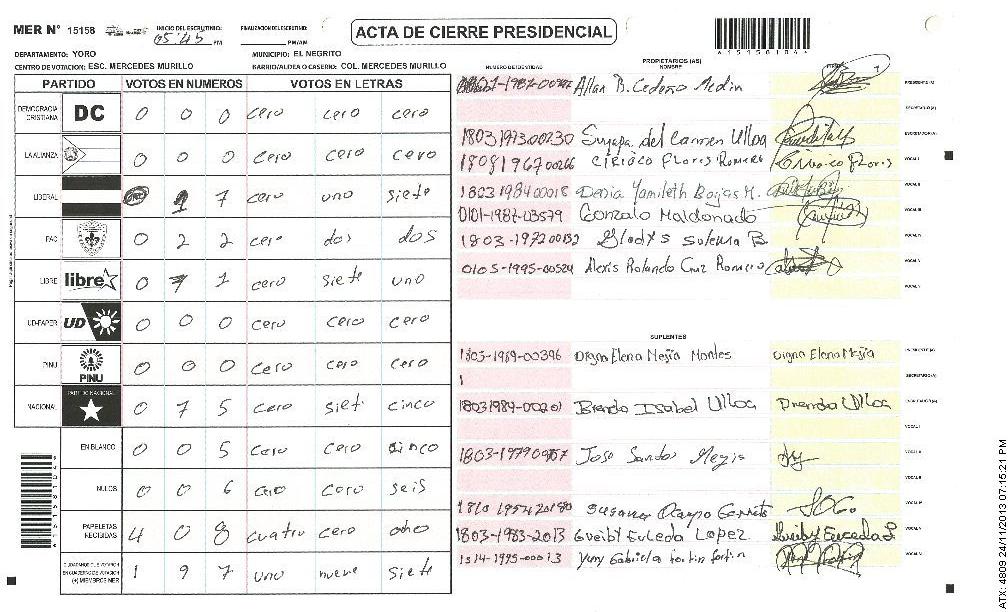 MER N° 15158 INICIO DEL ESCRUTINIO: 05:45 PM FINALIZACION DEL ESCRUTINIO: PM/AM ACTA DE CIERRE PRESIDENCIAL
DEPARTAMENTO: YORO MUNICIPIO: EL NEGRITO
CENTRO DE VOTACION: ESC. MERCEDES MURILLO BARRIO/ALDEA O CASERIO: COL. MERCEDES MURILLO
PARTIDO VOTOS EN NUMEROS VOTOS EN LETRAS
DEMOCRACIA CRISTIANA DC 0 0 0 cero cero cero
LA ALIANZA 0 0 0 cero cero cero
LIBERAL 1 7 cero uno siete
PAC 0 2 2 cero dos dos
LIBRE libre 0 7 1 cero siete uno
UD-FAPER UD 0 0 0 cero cero cero
PINU PINU 0 0 0 cero cero cero
NACIONAL PARTIDO NACIONAL 0 7 5 cero siete cinco
EN BLANCO 0 0 5 cero cero cinco
NULOS 0 0 6 cero cero seis
PAPELETAS RECIBIDAS 4 0 8 cuatro cero ocho
(+) MIEMBROS MER 1 9 7 uno nueve siete
NUMERO DE IDENTIDAD PROPIETARIOS (AS) NOMBRE
Allan B. Cedeño Medin PRESIDENTE (A)
SECRETARIO (A)
1803197300230 Suyapa del Carmen Ulloa ESCRUTADOR (A)
1808196700266 Ciriaco Floris Romero Ciriaco Floris VOCAL I
1803198400018 Denia Yamileth Bojas M. VOCAL II
0101-1987-03579 Gonzalo Maldonado VOCAL III
1803-197200132 Gladys Sulema B. VOCAL IV
0105-1995-00524 Alexis Rolando Cruz Romero VOCAL V
SUPLENTES
1803-1989-00396 Digna Elena Mejia Montes Digna Elena Mejia PRESIDENTE (A)
1 SECRETARIO (A)
18031984-00201 Brenda Isabel Ulloa Brenda Ulloa ESCRUTADOR (A)
VOCAL I
Jose Santos VOCAL II
VOCAL III
Susana Ocampo VOCAL IV
1803-1983-2013 Gueibl Euceda Lopez VOCAL V
1514-1995-00013 Yeny Gabriela fortin fortin
ATX: 4809 24/11/2013 07:15:21 PM